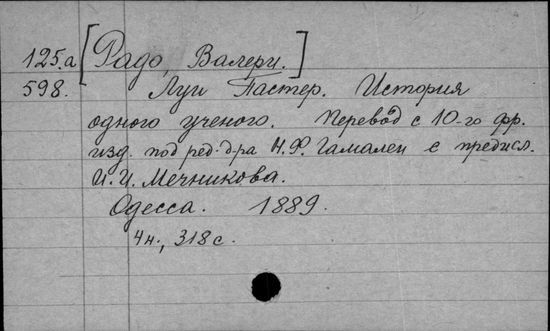 125.а [Радо, Валери.]
598. Луи Пастер. История
одного ученого. Перевод с 10-го фр.
изд. под ред. д-ра Н.Ф. Гамалеи с предисл.
И.И. Мечникова.
Одесса. 1889.
4н., 318 с.